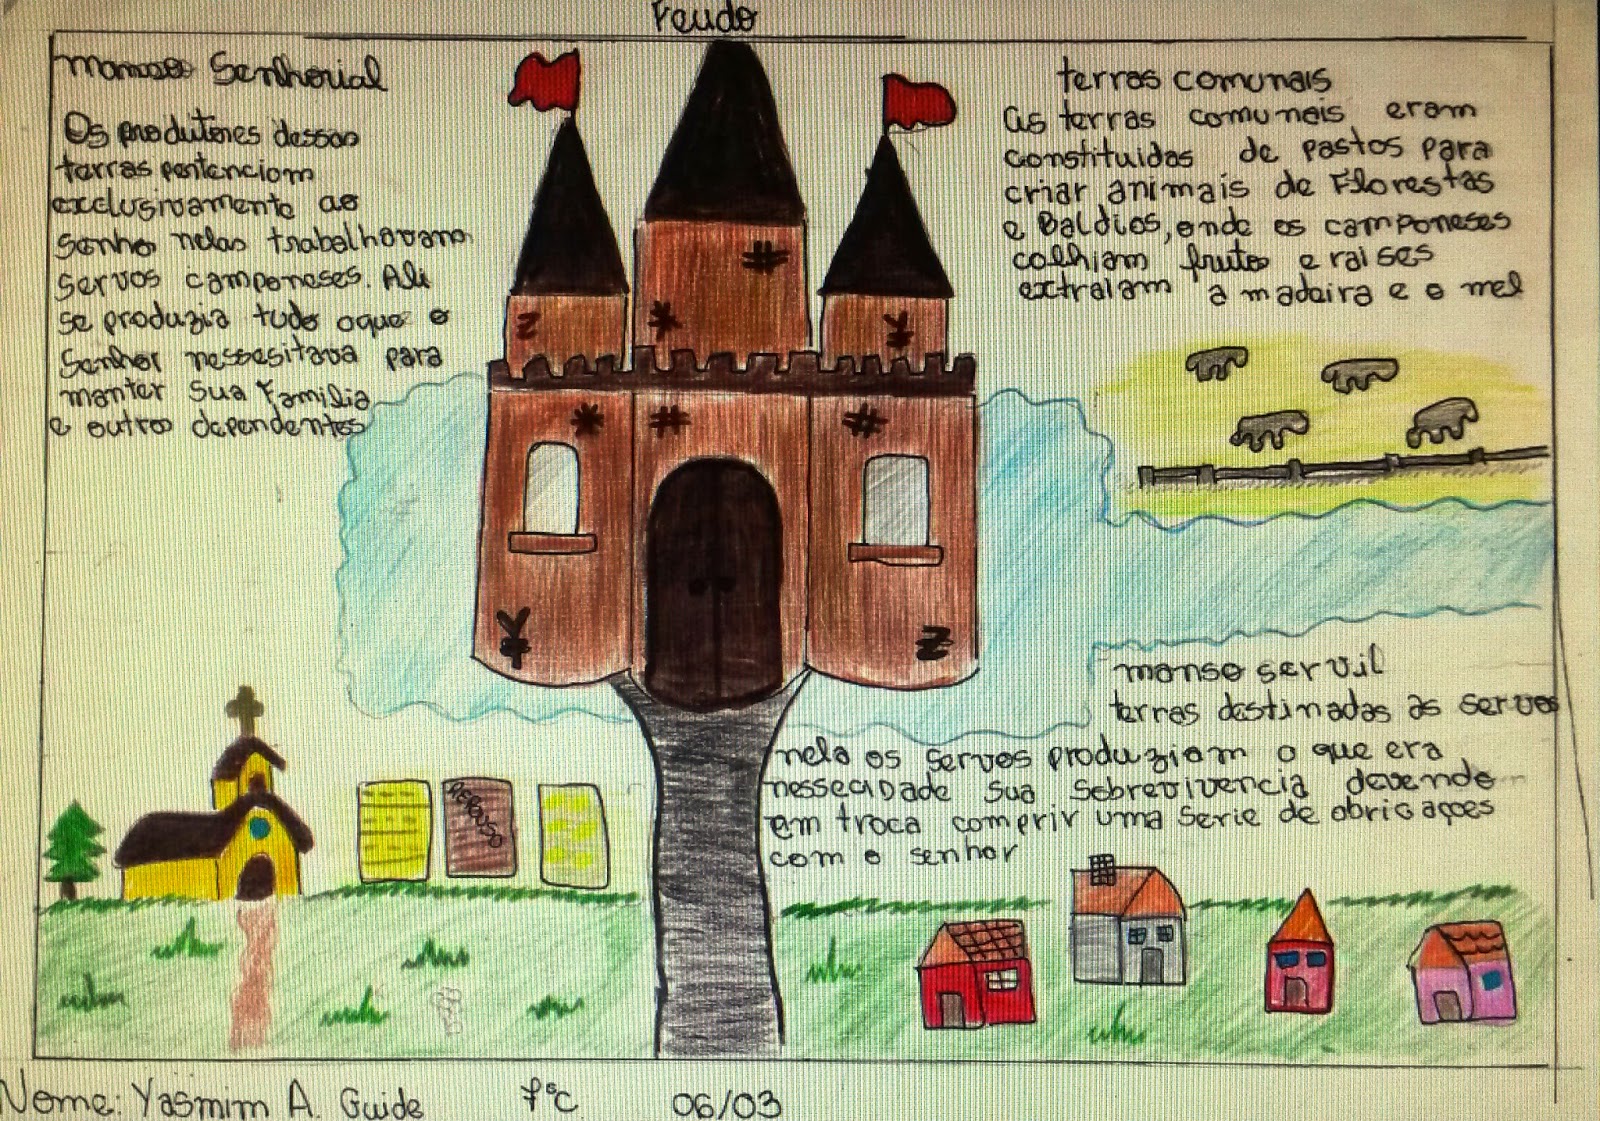 Feudo
manso Senhorial
Os produtores dessas
terras pertenciam
exclusivamente ao
Senho nelas trabelhavam
servos camponeses. Ali
se produzia tudo oque o
Senhor nessesitava para
manter sua Familia
e outros dependentes
terras comunais
As terras comuneis eram
constituidas de pastos para
criar animais de Florestas
e Baldios, onde os camponeses
colhiam frutos e raises
extraiam a madeira e o mel
manso servil
terras destinadas as servos
nela os servos produziam o que era
nessecidade sua sobrevivencia devendo
em troca comprir uma serie de obrigações
com o senhor
REPOUSO
Nome: Yasmim A. Guide 7ºC 06/03